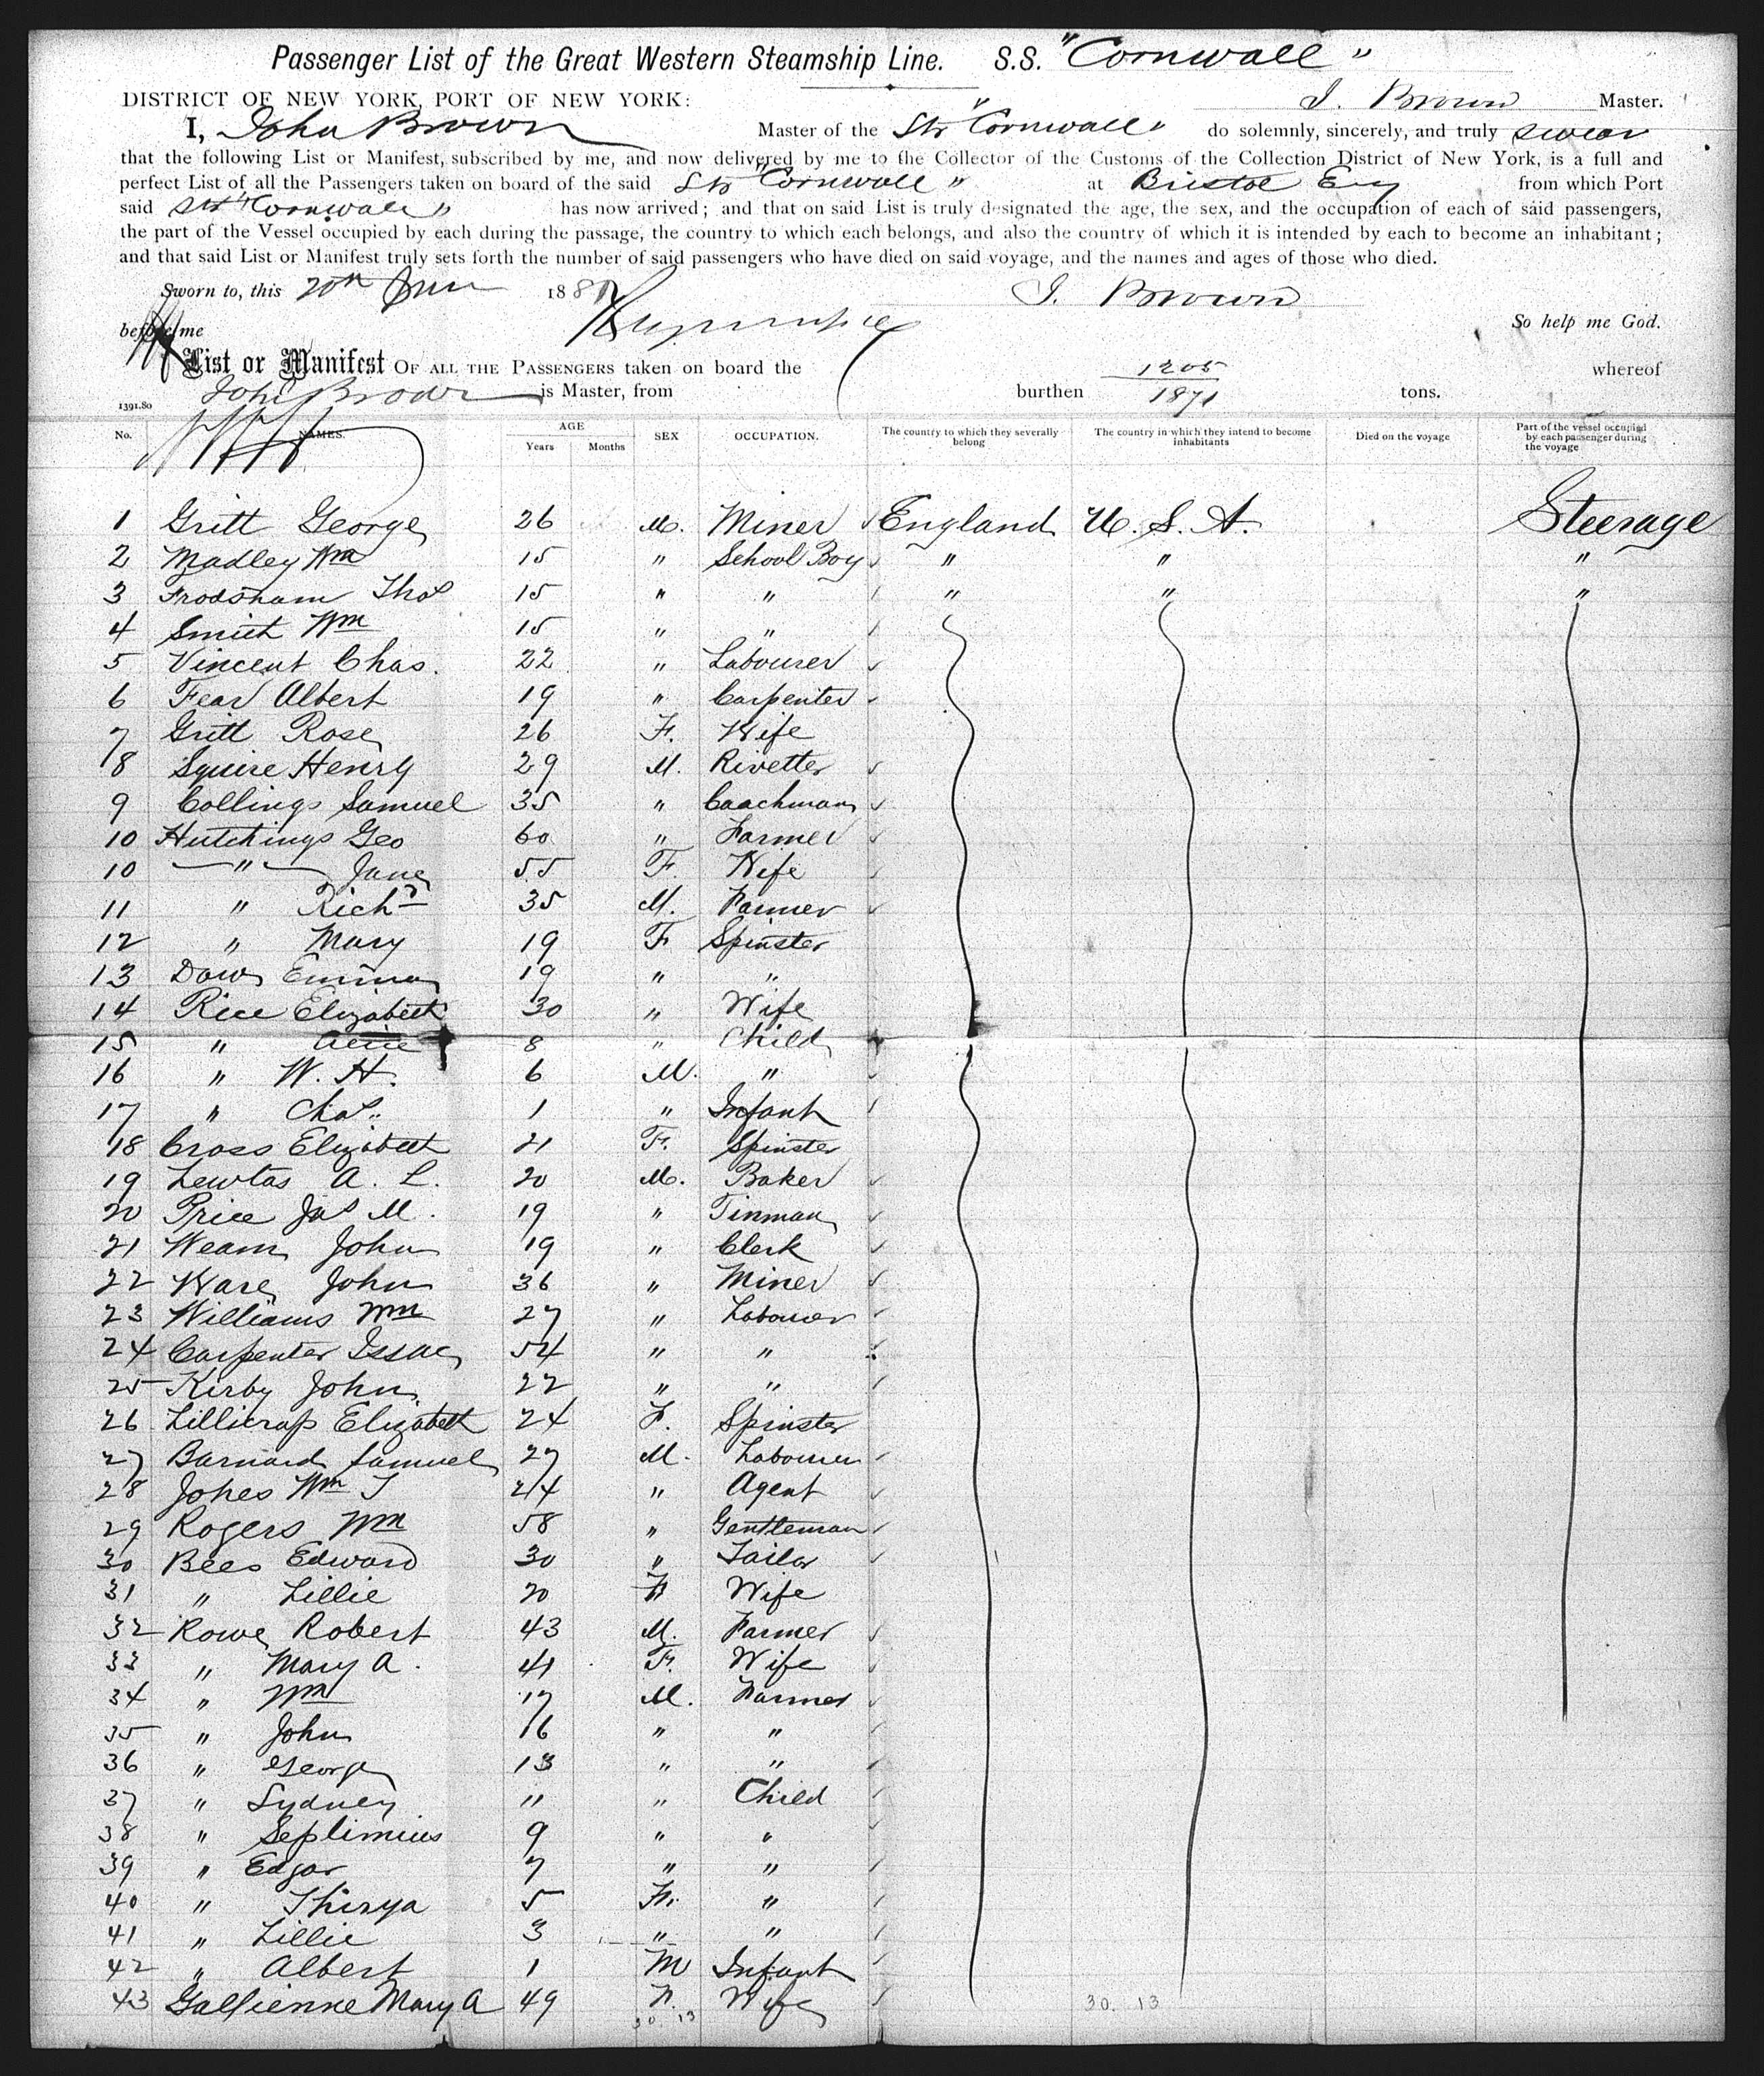 Passenger List of the Great Western Steamship Line. S.S. "Cornwall"
DISTRICT OF NEW YORK, PORT OF NEW YORK: J. Brown Master.
I, John Brown Master of the Str "Cornwall" do solemnly, sincerely, and truly swear
that the following List or Manifest, subscribed by me, and now delivered by me to the Collector of the Customs of the Collection District of New York, is a full and
perfect List of all the Passengers taken on board of the said Str "Cornwall" at Bristol Eng from which Port
said Str "Cornwall" has now arrived; and that on said List is truly designated the age, the sex, and the occupation of each of said passengers,
the part of the Vessel occupied by each during the passage, the country to which each belongs, and also the country of which it is intended by each to become an inhabitant;
and that said List or Manifest truly sets forth the number of said passengers who have died on said voyage, and the names and ages of those who died.
Sworn to, this 20th June 188 J. Brown
before me So help me God.
List or Manifest OF ALL THE PASSENGERS taken on board the 1205 whereof
John Brown is Master, from burthen 1871 tons.
1391.80
No. NAMES. AGE Years Months SEX OCCUPATION. The country to which they severally belong The country in which they intend to become inhabitants Died on the voyage Part of the vessel occupied by each passenger during the voyage
1 Gritt George 26 M. Miner England U. S. A. Steerage
2 Madley Wm 15 " School Boy " " "
3 Frodsham Thos 15 " " " " "
4 Smith Wm 15 " "
5 Vincent Chas. 22 " Labourer
6 Fear Albert 19 " Carpenter
7 Gritt Rose 26 F. Wife
8 Squire Henry 29 M. Rivetter
9 Collings Samuel 35 " Coachman
10 Hutchings Geo 60 " Farmer
10 " Jane 55 F. Wife
11 " Richd 35 M. Farmer
12 " Mary 19 F Spinster
13 Dow Emma 19 " "
14 Rice Elizabeth 30 " Wife
15 " Alice 8 " Child
16 " W. H. 6 M. "
17 " Chas. 1 " Infant
18 Cross Elizabeth 21 F. Spinster
19 Lewtas A. L. 20 M. Baker
20 Price Jas M. 19 " Tinman
21 Weam John 19 " Clerk
22 Ware John 36 " Miner
23 Williams Wm 27 " Labourer
24 Carpenter Issac 54 " "
25 Kirby John 22 " "
26 Lillicrap Elizabeth 24 F. Spinster
27 Barnard Samuel 27 M. Labourer
28 Jones Wm J 24 " Agent
29 Rogers Wm 58 " Gentleman
30 Bees Edward 30 " Tailor
31 " Lillie 20 F Wife
32 Rowe Robert 43 M. Farmer
33 " Mary A. 41 F. Wife
34 " Wm 17 M. Farmer
35 " John 16 " "
36 " George 13 " "
37 " Sydney 11 " Child
38 " Septimius 9 " "
39 " Edgar 7 " "
40 " Thirya 5 F. "
41 " Lillie 3 " "
42 " Albert 1 M Infant
43 Gallienne Mary A 49 F. Wife
30. 13 30. 13